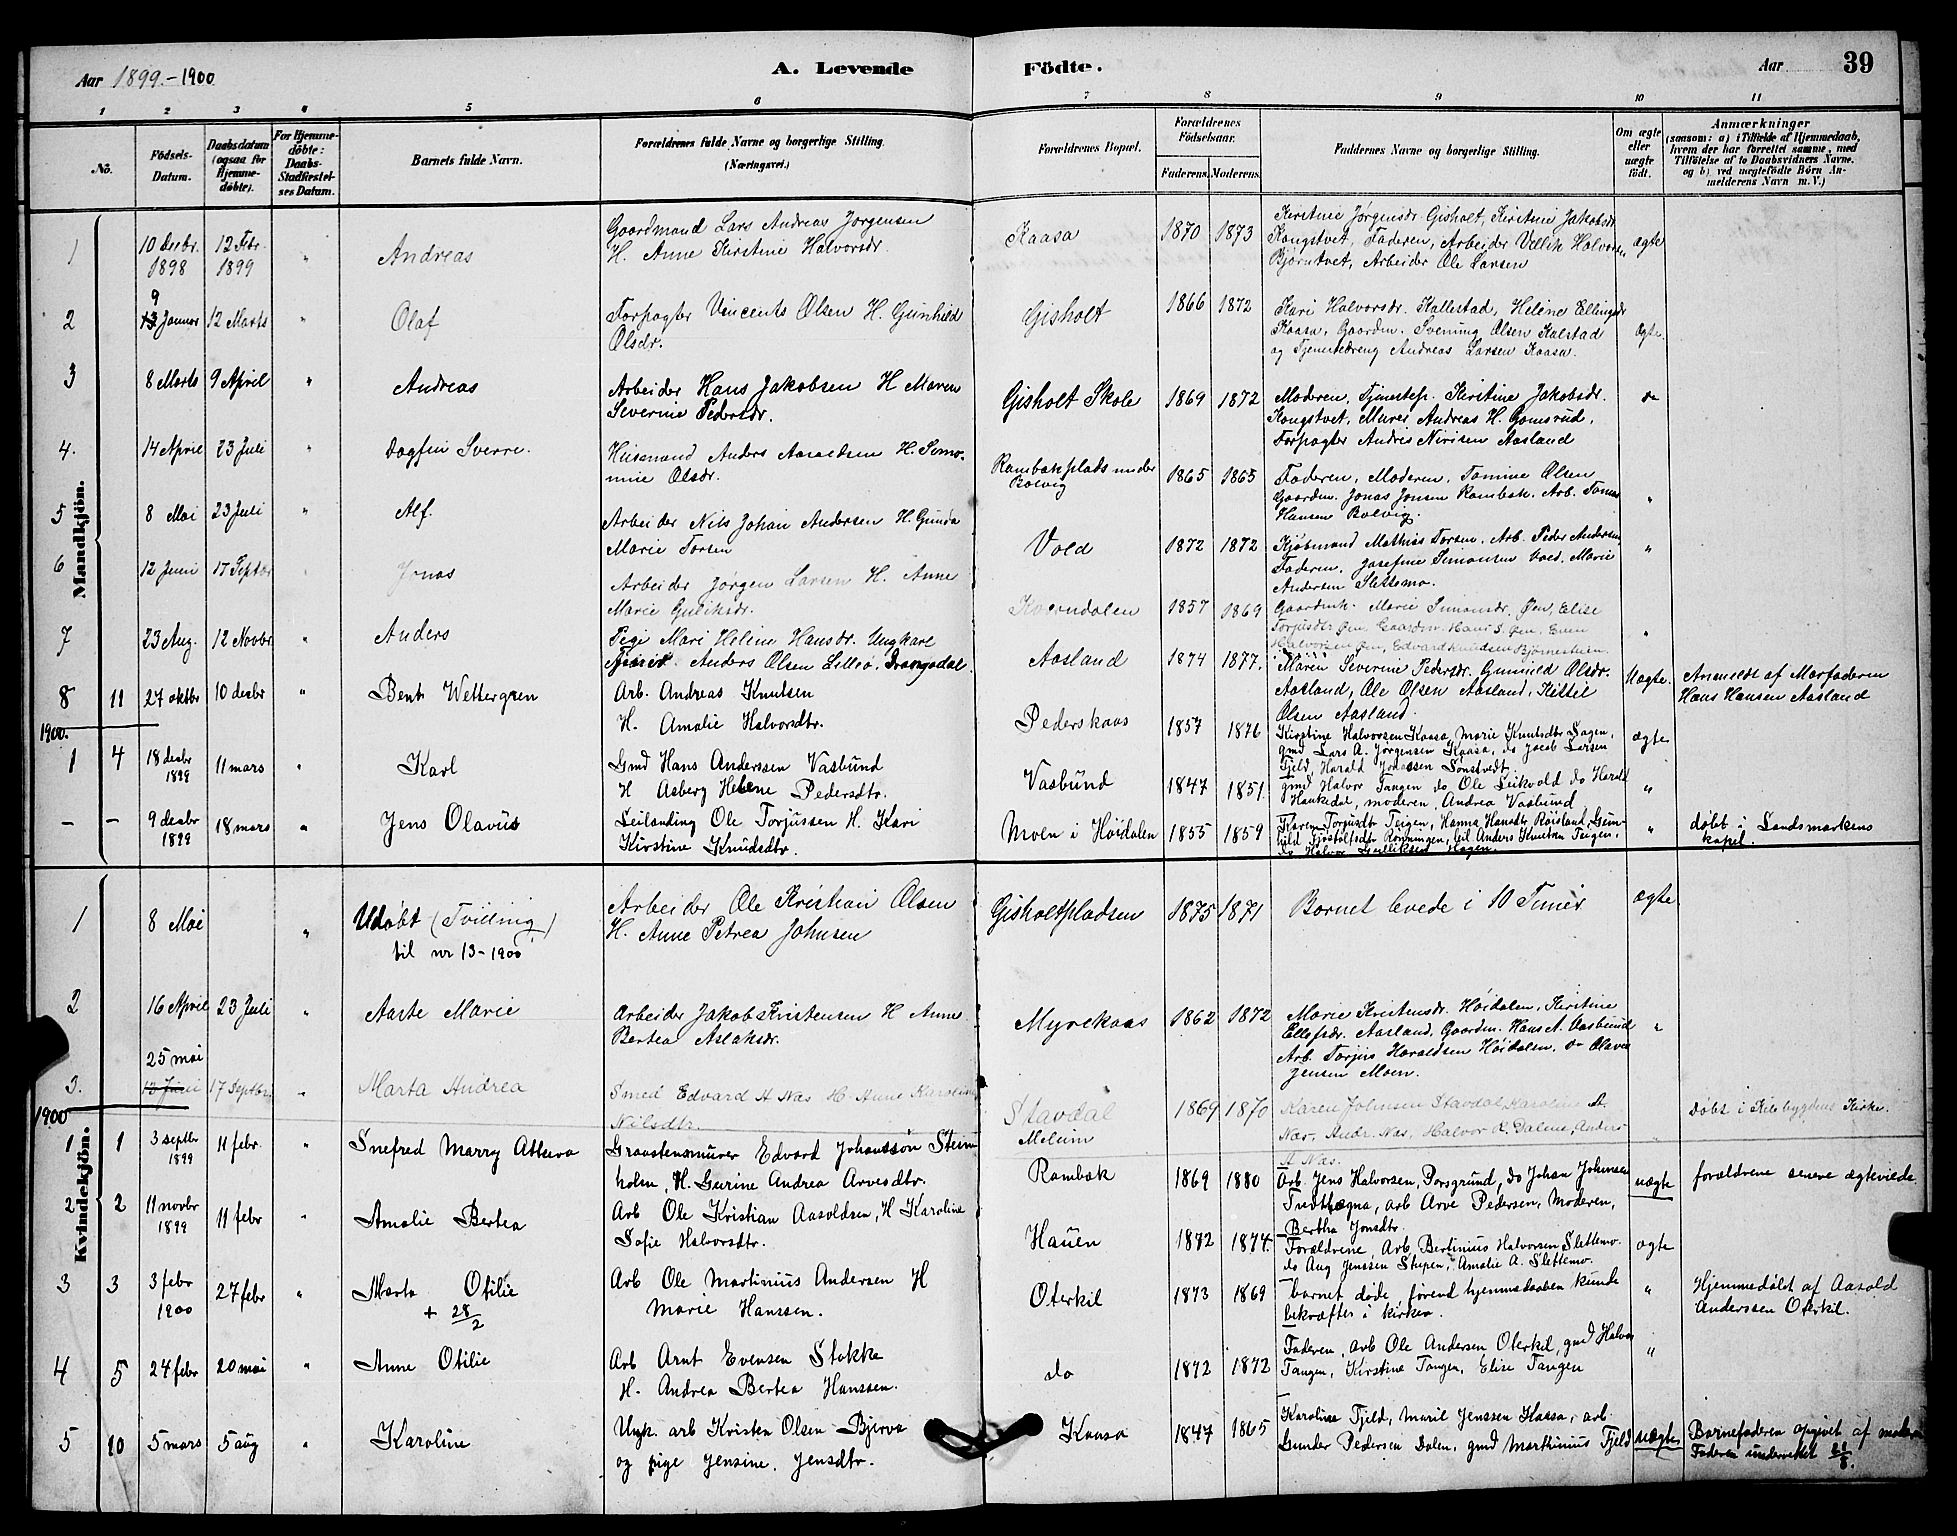 Aar 1899.-1900
A. Levende Födte.
Aar
39
1 2 3 4 5 6 7 8 9 10 11
No.
Födsels-Datum.
Daabsdatum (ogsaa for Hjemme-döbte).
For Hjemme-döbte: Daabs-Stadfæstel-ses Datum.
Barnets fulde Navn.
Forældrenes fulde Navne og borgerlige Stilling. (Næringsvei.)
Forældrenes Bopæl.
Forældrenes Födselsaar.
Faderens. Moderens.
Faddernes Navne og borgerlige Stilling.
Om ægte eller uægte födt.
Anmærkninger
(saasom: a) i Tilfælde af Hjemmedaab,
hvem der har forrettet samme, med
Tilföielse af to Daabsvidners Navne,
og b) ved uægtefödte Börn An-
melderens Navn m. V.)
Mandkjön.
1 10 Decbr. 1898 12 Febr. 1899 " Andreas
Gaardmand Lars Andreas Jørgensen
H. Anne Kirstine Halvorsdr.
Kaasa 1870 1873
Kirstine Jørgensdr. Gisholt, Kirstine Jakobsdr.
Kongstvet, Faderen, Arbeider Halvorsen
Bjørntvet, Arbeider Ole Larsen
ægte
2 9 13 Januar 12 Marts " Olaf
Forpagter Vincents Olsen H. Gunhild
Olsdr.
Gisholt 1866 1872
Kari Halvorsdr. Kallestad, Heline Ellingsdr
Kaasa, Gaardm. Svening Olsen Kalstad
og Tjenestedreng Andreas Larsen Kaasa.
Ægte.
3 8 Marts 9 April " Andreas
Arbeider Hans Jakobsen H Maren
Severine Pedersdr.
Gisholt Skole 1869 1872
Moderen, Tjenestep. Kirstine Jakobsdr.
Kongstvet, Murer Andreas H. Gomsrud,
Forpagter Andris Nirisen Aasland
do
4. 14 April 23 Juli " Dagfin Sverre.
Husmand Anders Aasoldsen H. Semo-
nine Olsdr.
Rambakplads under
Bolvig
1865 1865
Faderen, Moderen, Tomine Olsen
Gaardm. Jonas Jonsen Rambak. Arb. Tomas
Hansen Bolvig.
"
5 8 Mai 23 Juli " Alf.
Arbeider Nils Johan Andersen H. Gunda
Marie Torsen
Vold 1872 1872
Kjøbmand Mathias Torsen, Arb. Peder Andersen
Faderen, Josefine Simonsen Vold, Marie
Andersen Slettemo.
"
6 12 Juni 17 Septbr " Jonas
Arbeider Jørgen Larsen H. Anne
Marie Guliksdr.
1857 1869
Gaardmk. Marie Simonsdr. Øen, Elise
Torjusdtr Øen, Gaardm. Hans S. Øen, Even
Halvorsen Øen, Edvard Knudsen Bjørnestien.
"
7 23 Aug. 12 Novbr " Anders
Pige Mari Heline Hansdr. Ungkarl
Anders Olsen Lilleø, Drangedal.
Aasland 1874 1877.
Maren Severine Pedersdr. Gunnild Olsdr.
Aasland, Ole Olsen Aasland, Kittil
Olsen Aasland.
Uægte.
Anmeldt af Morfaderen
Hans Hansen Aasland
8 11 27 oktbr 10 desbr " Bent Wettergren
Arb. Andreas Knutsen
H. Amalie Halvorsdtr.
Pederskaas 1857 1876
Kirstine Halvorsen Kaasa, Marie Knutsdtr Hagen,
gmd Lars A. Jørgensen Kaasa, do Jacob Larsen
Fjeld, Harald Jonassen Sønstvedt.
ægte
1900.
1 4 18 desbr 1899 11 mars " Karl
Gmd Hans Anderssen Vasbund
H Asberg Helene Pedersdtr.
Vasbund 1847 1851.
gmd Halvor Tangen do Ole Leikvold do Harald
Haukedal, moderen, Andrea Vasbund
"
- - 9 desbr 1899 18 mars " Jens Olavus
Leilænding Ole Torjussen H. Kari
Kirstine Knudsdtr.
Moen i Høidalen 1855 1859
Karen Torjusdtr Teigen, Hanna Hansdtr Røisland, Gun-
hild Torstolfsdtr Rønningen, leil Anders Knutsen Teigen,
do Halvor Gulliksen Hagen.
"
døbt i Landsmarkens
kapel.
Kvindekjön.
1 8 Mai " Udøbt (Tvilling)
til nr 13-1900
Arbeider Ole Kristian Olsen
H. Anne Petrea Johnsen
Gisholtpladsen 1875 1871
Barnet levede i 10 Timer
ægte
2 16 April 23 Juli " Aaste Marie
Arbeider Jakob Kristensen H Anne
Bertea Aslaksdr.
Myrekaas 1862 1872
Marie Kristensdr. Høidalen, Kirstine
Ellefsdr. Aasland, Gaardm. Hans A. Vasbund
Arb. Torjus Haraldsen Høidalen, do Olaves
Jensen Moen.
"
3. 25 mai 13 Juni 17 Septbr. " Marta Andrea
Smed Edvard A Næs H. Anne Karoline
Nilsdtr.
Stavdal
Melum
1869 1870
Karen Johnsen Stavdal, Karoline A.
Næs, Andr. Næs, Halvor R. Dalene, Anders
A Næs.
Døbt i Kilebygdens Kirke.
1900
1 1 3 septbr 1899 11 febr. " Snefred Marry Atteva
Graastensmurer Edvard Johanssøn Stein-
holm, H. Gurine Andrea Arvesdtr.
Rambak 1869 1880
Arb. Jens Halvorsen, Porsgrund, do Johan Johnsen
Tvedtægna, arb Arve Pedersen, Moderen,
Bertha Jonsdtr.
uægte
forældrene senere ægteviede
2 2 11 novbr 1899 11 febr " Amalie Bertea
Arb Ole Kristian Aasoldsen, H Karoline
Sofie Halvorsdtr.
Hauen 1872 1874.
Forældrene, Arb. Bertinius Halvorsen Slettemo.
do Aug Jenssen Stupen, Amalie A. Slettemo.
ægte
3 3 3 febr 1900 27 febr " Marta Otilie
+ 28/2
Arb Ole Martinius Andersen H
Marie Hanssen.
Oterkil 1873 1869
barnet døde, førend hjemmedaaben kunde
bekræftes i kirken.
"
Hjemmedøbt af Aasold
Anderssen Oterkil.
4 5 24 febr 20 mai " Anne Otilie
Arb Arnt Evensen Stokke
H. Andrea Bertea Hanssen.
do 1872 1872
Faderen, arb Ole Andersen Oterkil, gmd Halvor
Tangen, Kirstine Tangen, Elise Tangen
"
5 10 5 mars 5 aug " Karoline
Ungk. arb Kristen Olsen Bjerva
og pige Jensine Jensdtr.
Kaasa 1847 1865
Karoline Fjeld, Maril Jenssen Kaasa, arb.
Gunder Pedersen Dalen, gmd Martinius Fjeld
uægte
Barnefaderen opgivet af moderen
Faderen underrettet